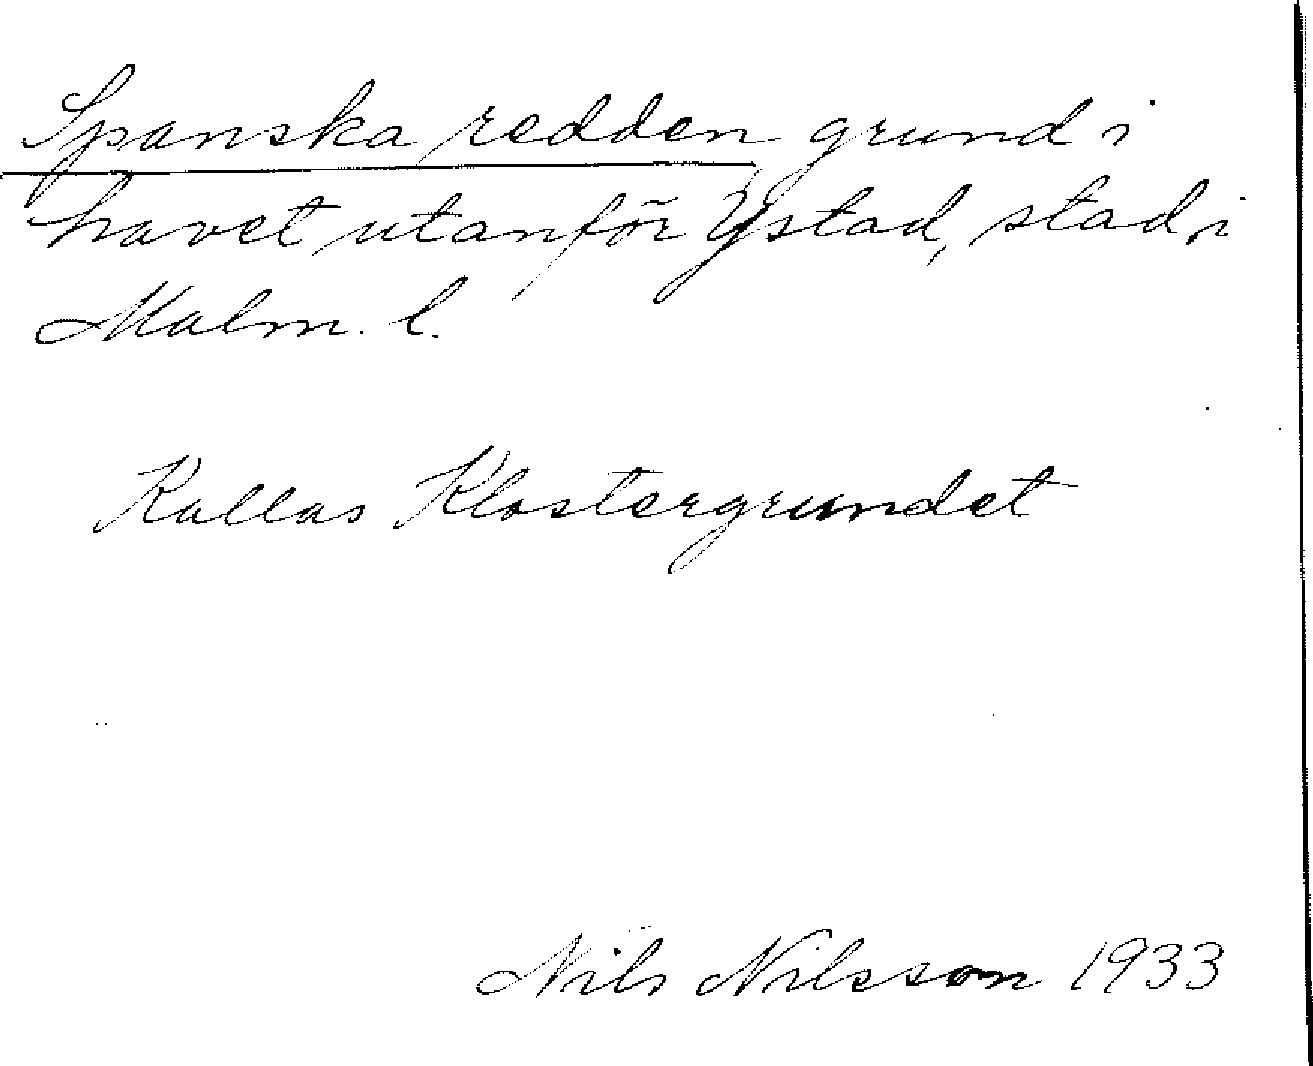 Spanska redden grund i
havet utanför Ystad, stad i
Malm. l.
Kallas Klostergrundet
Nils Nilsson 1933